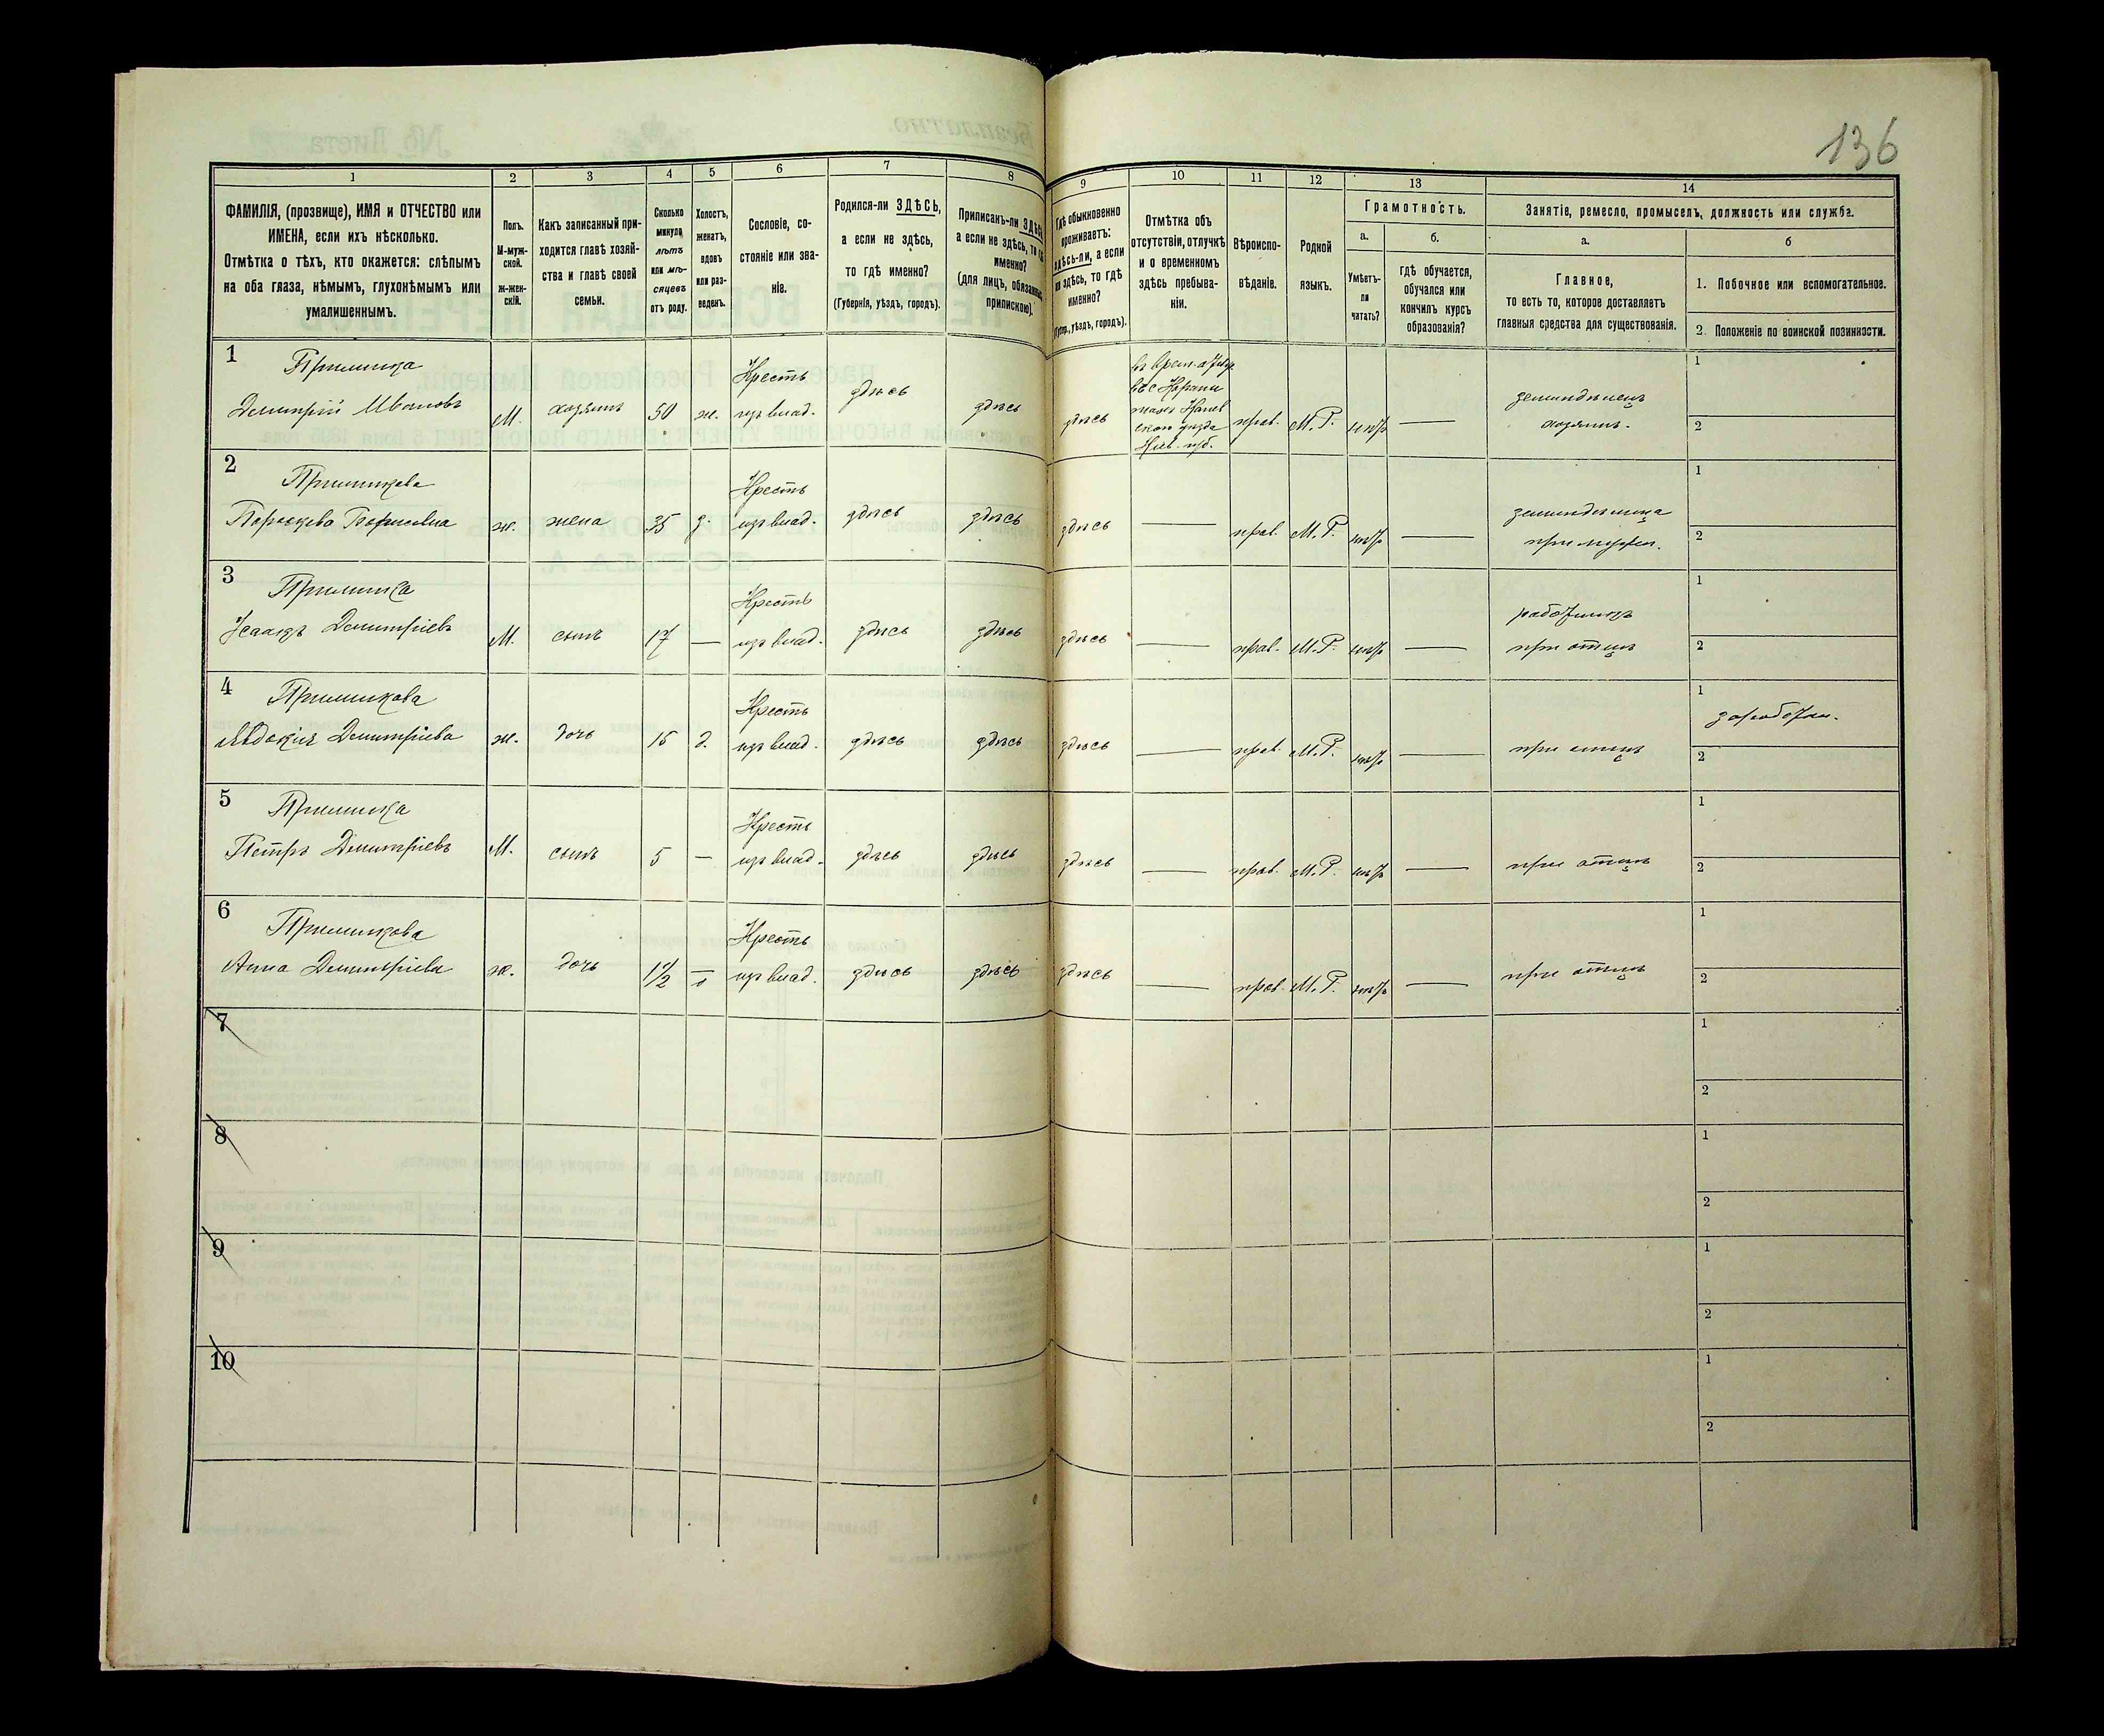 136
1 2 3 4 5 6 7 8 9 10 11 12 13 14
ФАМИЛІЯ, (прозвище), ИМЯ и ОТЧЕСТВО или
ИМЕНА, если ихъ нѣсколько.
Отмѣтка о тѣхъ, кто окажется: слѣпымъ
на оба глаза, нѣмымъ, глухонѣмымъ или
умалишеннымъ.
Полъ.
М-муж-
ской.
ж-жен-
скій.
Какъ записанный при-
ходится главѣ хозяй-
ства и главѣ своей
семьи.
Сколько
минуло
лѣтъ
или мѣ-
сяцевъ
отъ роду.
Холостъ,
женатъ,
вдовъ
или раз-
веденъ.
Сословіе, со-
стояніе или зва-
ніе.
Родился-ли ЗДѢСЬ,
а если не здѣсь,
то гдѣ именно?
(Губернія, уѣздъ, городъ).
Приписанъ-ли ЗДѢСЬ,
а если не здѣсь, то гдѣ
именно?
(для лицъ, обязанныхъ
припискою).
Гдѣ обыкновенно
проживаетъ:
здѣсь-ли, а если
не здѣсь, то гдѣ
именно?
(Губер., уѣздъ, городъ).
Отмѣтка объ
отсутствіи, отлучкѣ
и о временномъ
здѣсь пребыва-
ніи.
Вѣроиспо-
вѣданіе.
Родной
языкъ.
Грамотность.
а.
Умѣетъ-
ли
читать?
б.
гдѣ обучается,
обучался или
кончилъ курсъ
образованія?
Занятіе, ремесло, промыселъ, должность или служба.
а.
Главное,
то есть то, которое доставляетъ
главныя средства для существованія.
б
1. Побочное или вспомогательное.
2. Положеніе по воинской повинности.
1
Димитрій Ивановъ М. хозяинъ 50 ж. Кресть изъ влад. здѣсь здѣсь здѣсь
прав. М. Р. нѣтъ —
земледѣлецъ
хозяинъ.
1
2
2
Борисовна ж. жена 35 Кресть изъ влад. здѣсь здѣсь здѣсь — прав. М. Р. нѣтъ —
при мужѣ.
1
2
3
Димитріевъ М. сынъ 17 — Кресть изъ влад. здѣсь здѣсь здѣсь — прав. М. Р. нѣтъ —
при отцѣ
1
2
4
Евдокія Димитріева ж. дочь 15 д. Кресть изъ влад. здѣсь здѣсь здѣсь — прав. М. Р. нѣтъ — при отцѣ
1
2
5
Петръ Димитріевъ М. сынъ 5 — Кресть изъ влад. здѣсь здѣсь здѣсь — прав. М. Р. нѣтъ — при отцѣ
1
2
6
Анна Димитріева ж. дочь 1½ — Кресть изъ влад. здѣсь здѣсь здѣсь — прав. М. Р. нѣтъ — при отцѣ
1
2
7
1
2
8
1
2
9
1
2
10
1
2